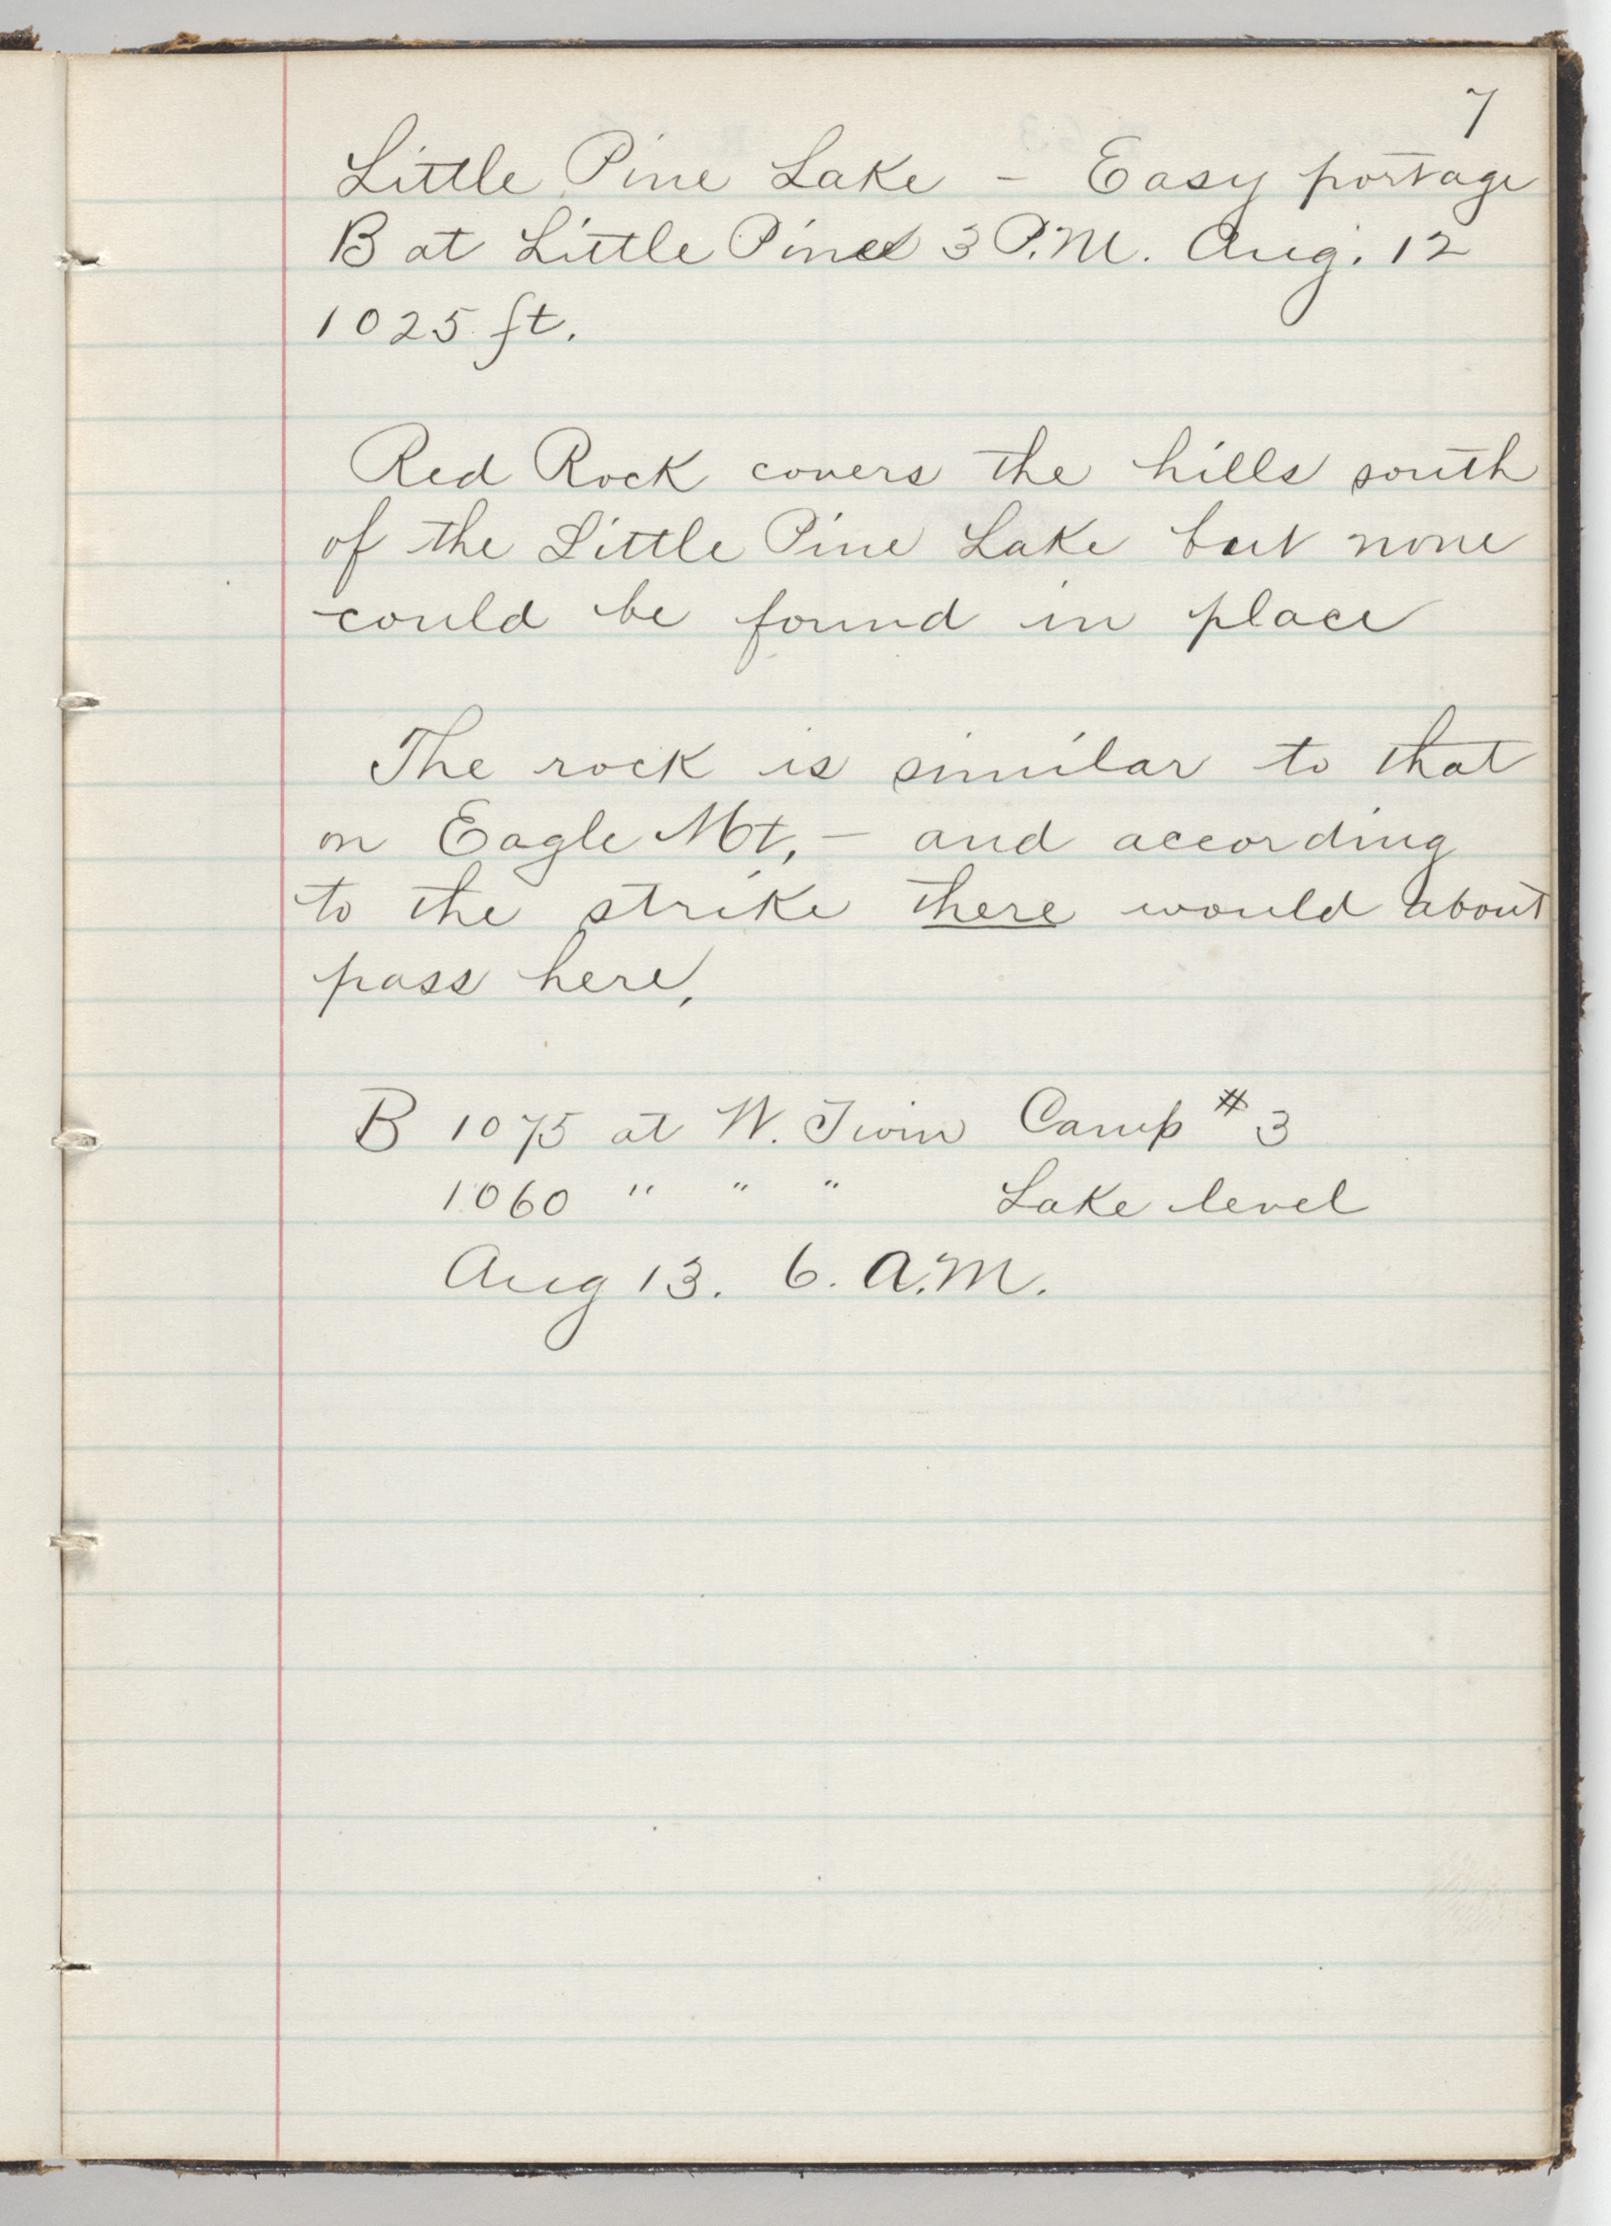 7
Little Pine Lake - Easy portage
B at Little Pine 3 P.M. Aug. 12
1025 ft.
Red Rock covers the hills south
of the Little Pine Lake but none
could be found in place
The rock is similar to that
on Eagle Mt, - and according
to the strike there would about
pass here.
B 1075 at W. Twin Camp # 3
1060 " " " Lake level
Aug 13. 6. A.M.